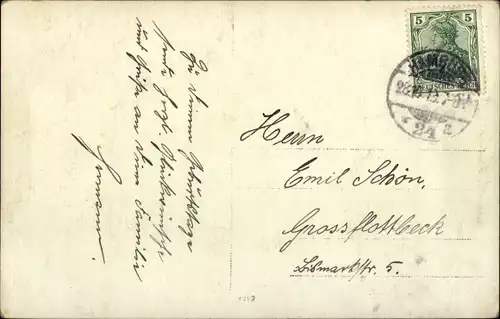 Zu Deinem Geburtstage
sende herzl. Glückwünsche
und Grüße an Deine Familie
Hermann.
5 5
HAMBURG
24
Herrn
Emil Schön,
Grossflottbeck
Bismarkstr. 5.